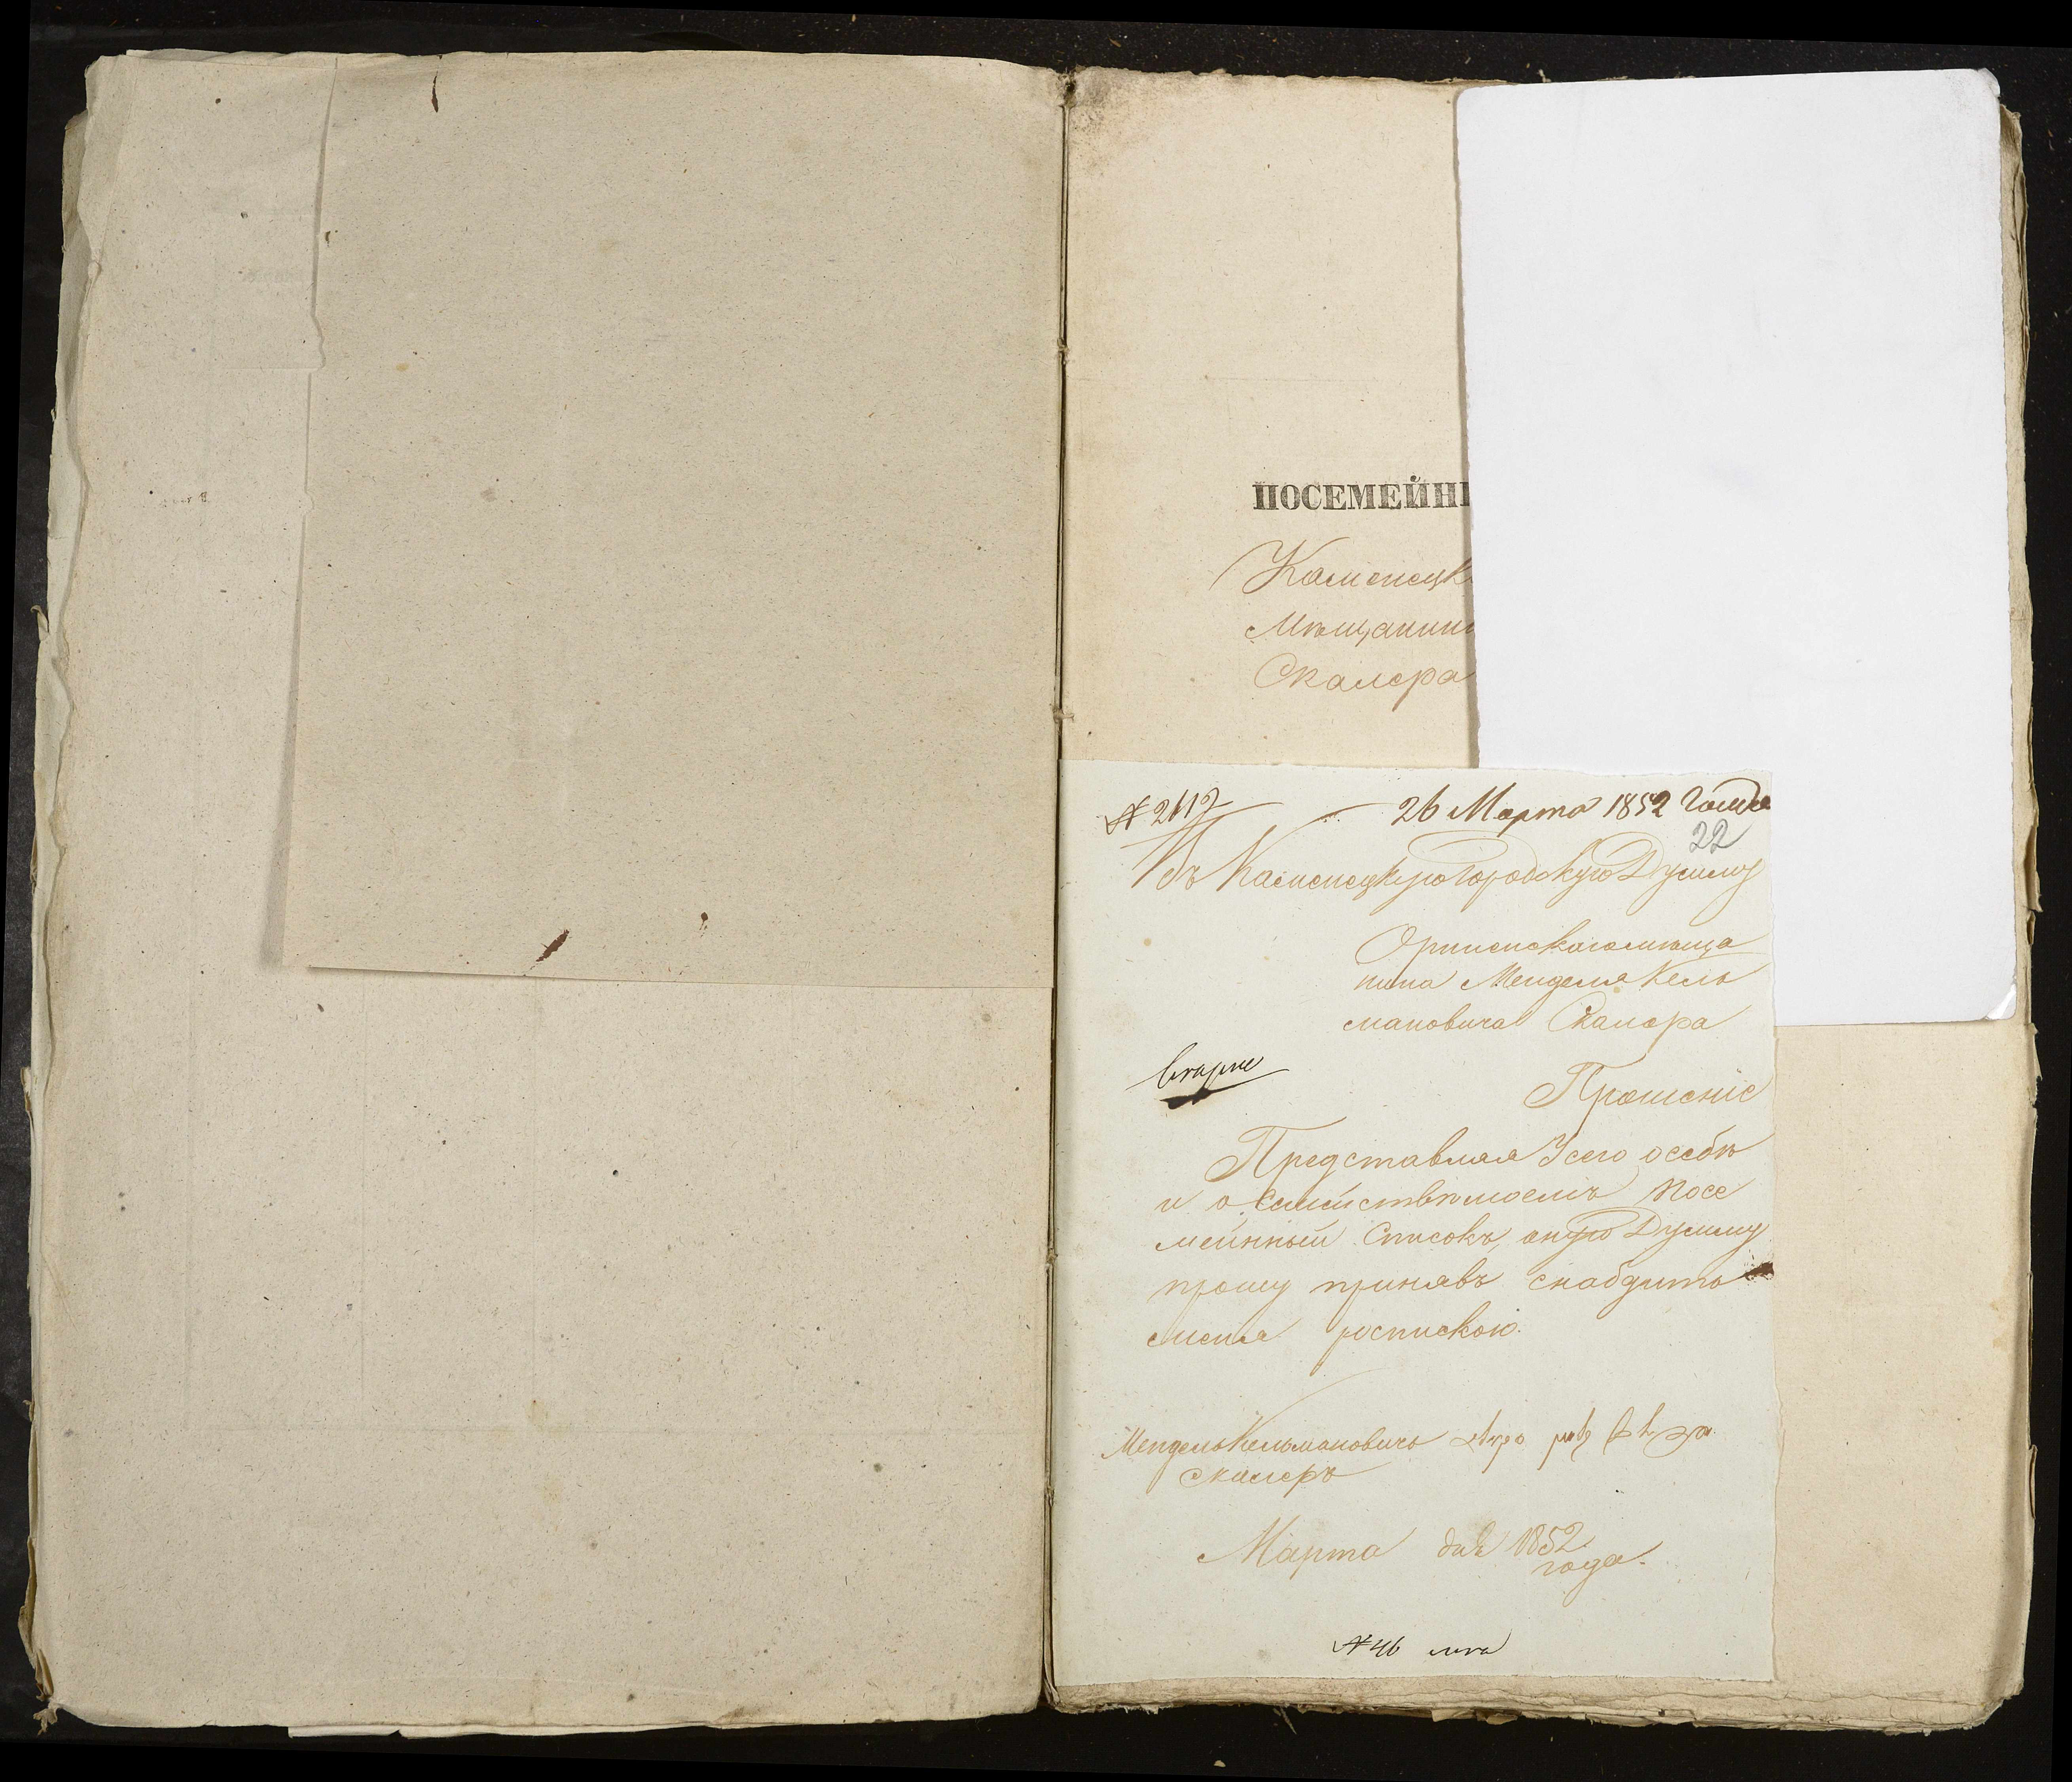 ПОСЕМЕЙН
Каменецк
Мѣщанин
Скалера
№ 2112 26 Марта 1852 Года
22
Въ Каменецкую Городскую Думу
Орининскаго мѣща
нина Менделя Кель
мановича Скалера
Прошеніе
Представляя У сего о себѣ
и о Семействѣ моемъ Посе
мейный Списокъ, оную Думу
прошу принявъ снабдить
меня роспискою.
Мендель Кельмановичъ
Скалеръ
Марта дня 1852
года.
№ 46